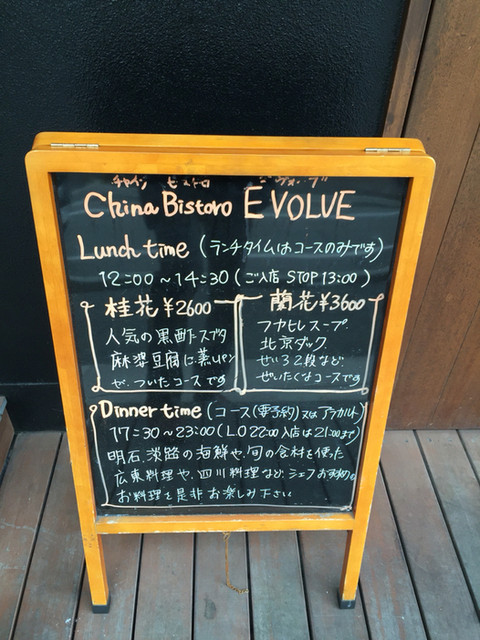 チャイナ ビストロ エヴォルブ
China Bistoro EVOLVE
Lunch time (ランチタイムはコースのみです)
12:00～14:30(ご入店 STOP 13:00)
桂花¥2600
人気の黒酢スブタ
麻婆豆腐に蒸しパン
がついたコースです
蘭花¥3600
フカヒレスープ
北京ダック
せいろ2段など
ぜいたくなコースです
Dinner time (コース(要予約)又はアラカルト)
17:30～23:00(L.O 22:00 入店は21:00まで)
明石、淡路の海鮮や、旬の食材を使った
広東料理や、四川料理など、シェフお手製の
お料理を是非お楽しみ下さい